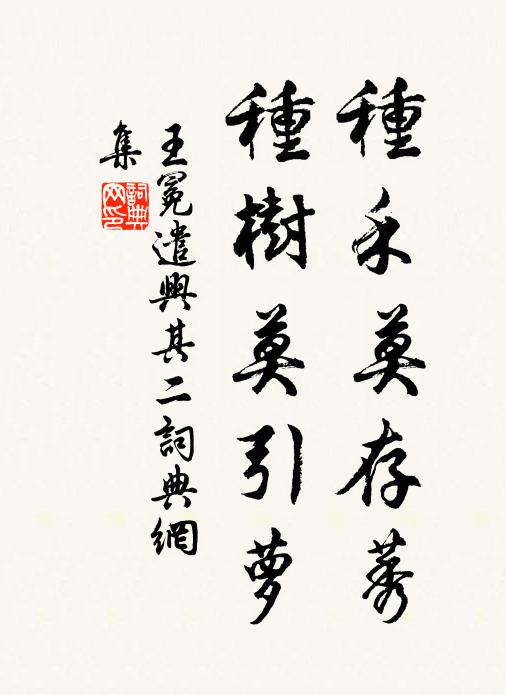 種禾莫存莠
種樹莫引萝
王冕遣興其二詞典網
集
詞典
网印